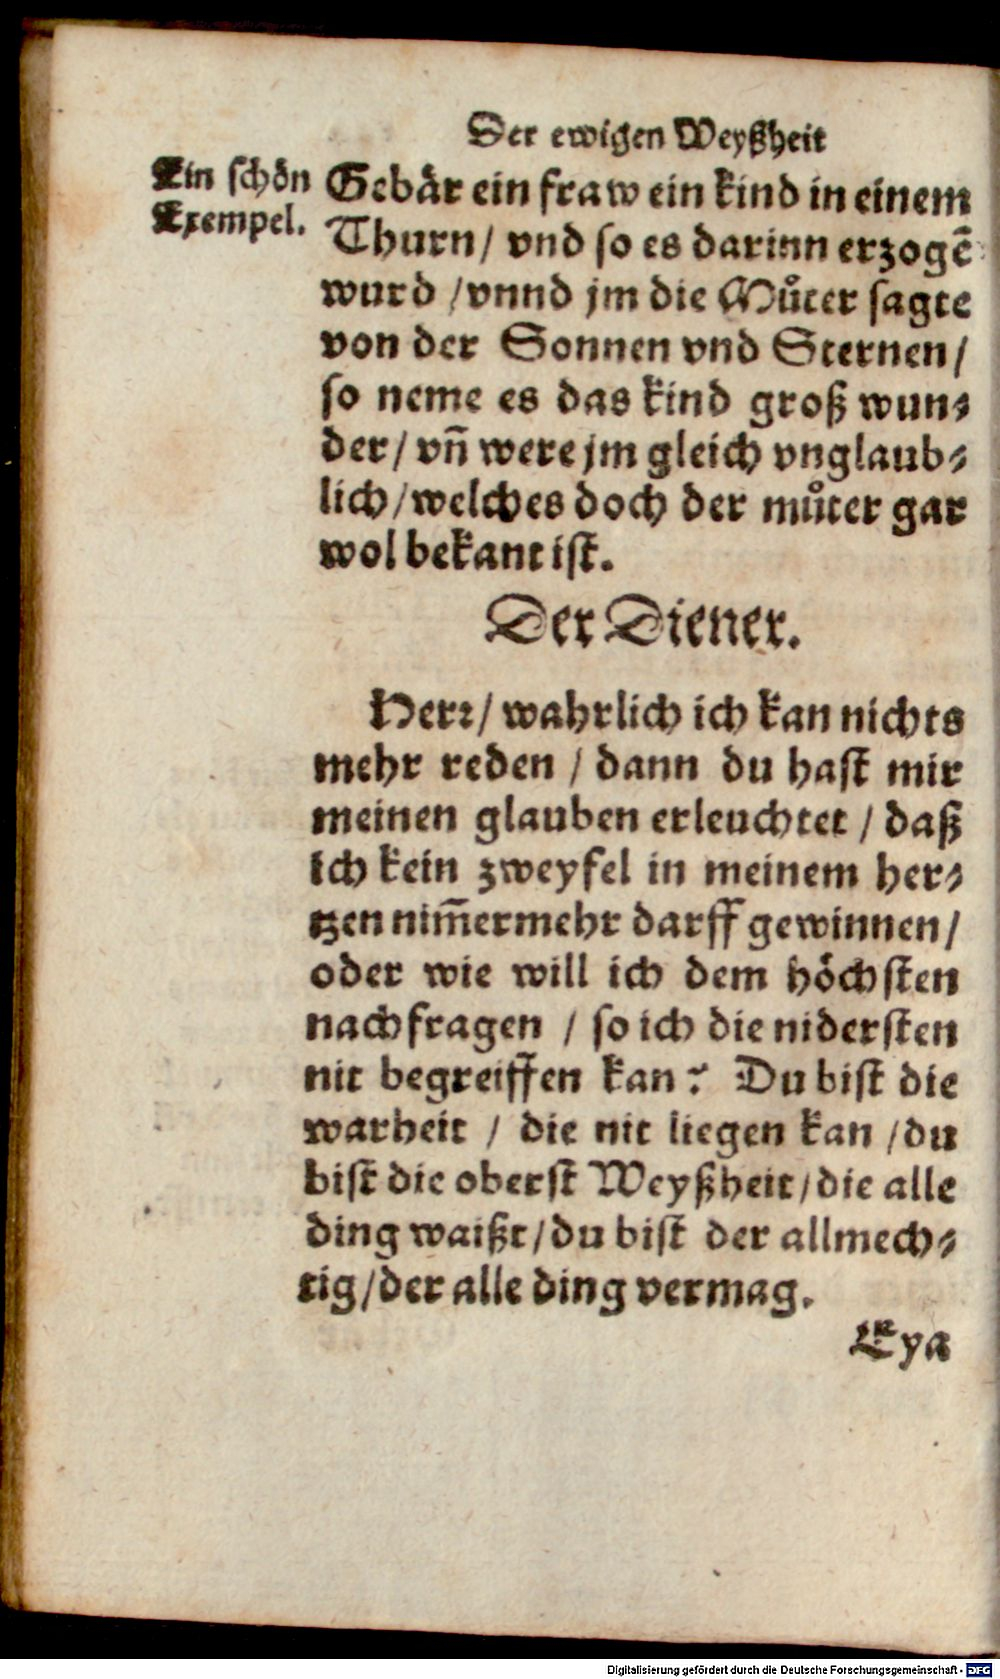 Der ewigen Weyßheit
Ein schön
Exempel.
Gebär ein fraw ein kind in einem
Thurn / vnd so es darinn erzogē
wurd / vnnd jm die Můter sagte
von der Sonnen vnd Sternen /
so neme es das kind groß wun⸗
der / vñ were jm gleich vnglaub⸗
lich / welches doch der můter gar
wol bekant ist.
Der Diener.
Herr / wahrlich ich kan nichts
mehr reden / dann du hast mir
meinen glauben erleuchtet / daß
ich kein zweyfel in meinem her⸗
tzen nim̄ermehr darff gewinnen /
oder wie will ich dem höchsten
nachfragen / so ich die nidersten
nit begreiffen kan? Du bist die
warheit / die nit liegen kan / du
bist die oberst Weyßheit / die alle
ding waißt / du bist der allmech⸗
tig / der alle ding vermag.
Eya
Digitalisierung gefördert durch die Deutsche Forschungsgemeinschaft - DFG